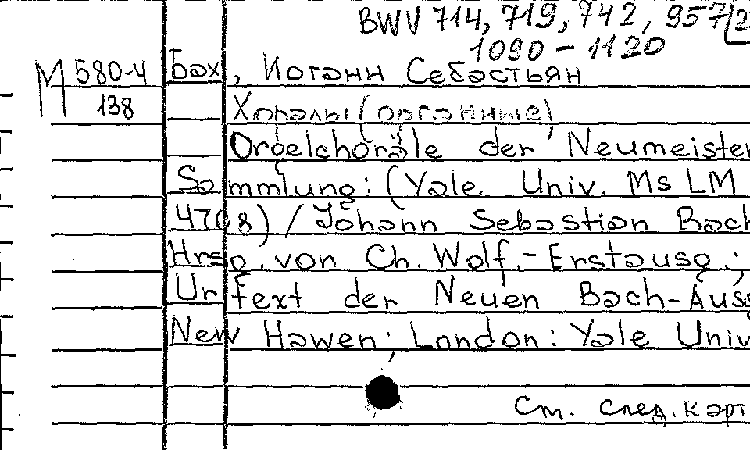 BWV 714, 719, 742, 957
1090-1120
М 580-4 Бах, Иоганн Себастьян
138 Хоралы (органные)
Orgelchoräle der Neumeister
Sammlung: (Yale Univ. Ms LM
4708) / Johann Sebastian Bach
Hrsg. von Ch. Wolf.- Erstausg.;
Urtext der Neuen Bach-Ausg
New Hawen; London: Yale Univ
См. след. карт